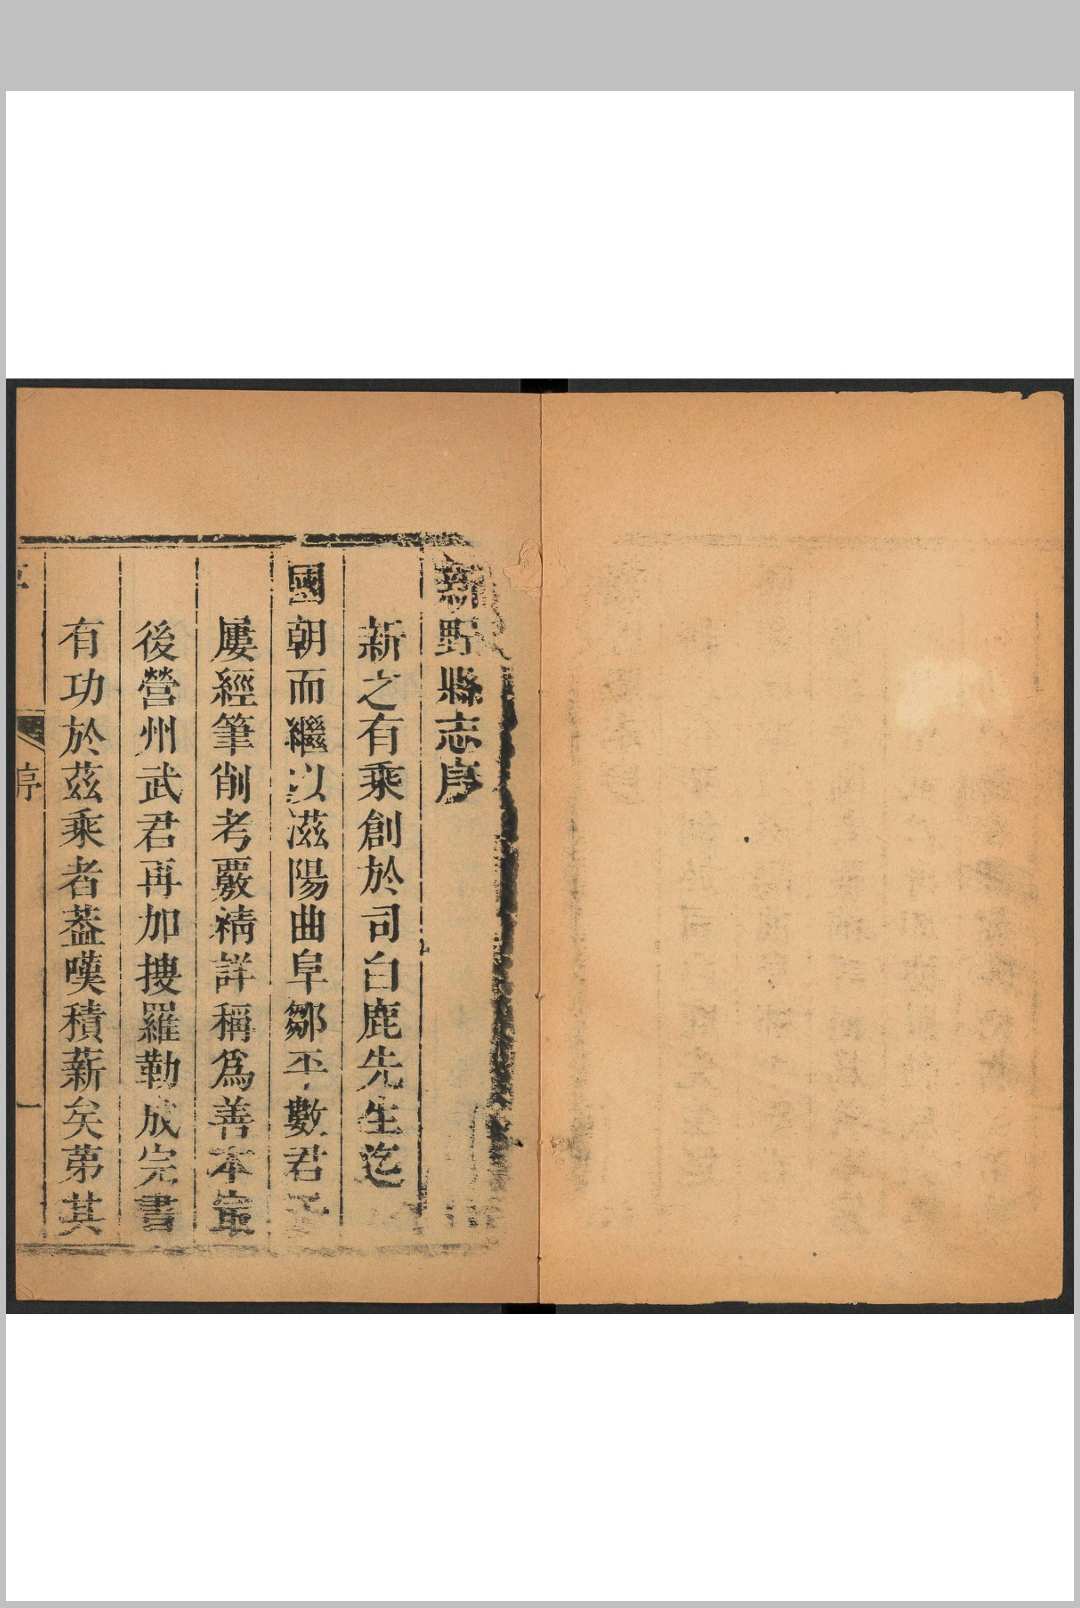 新野縣志序
新之有乘創於司白鹿先生迄
國朝而繼以滋陽曲阜鄒平數君子
屢經筆削考覈精詳稱爲善本寂
後營州武君再加搜羅勒成完書
有功於茲乘者葢嘆積薪矣苐其
序
一